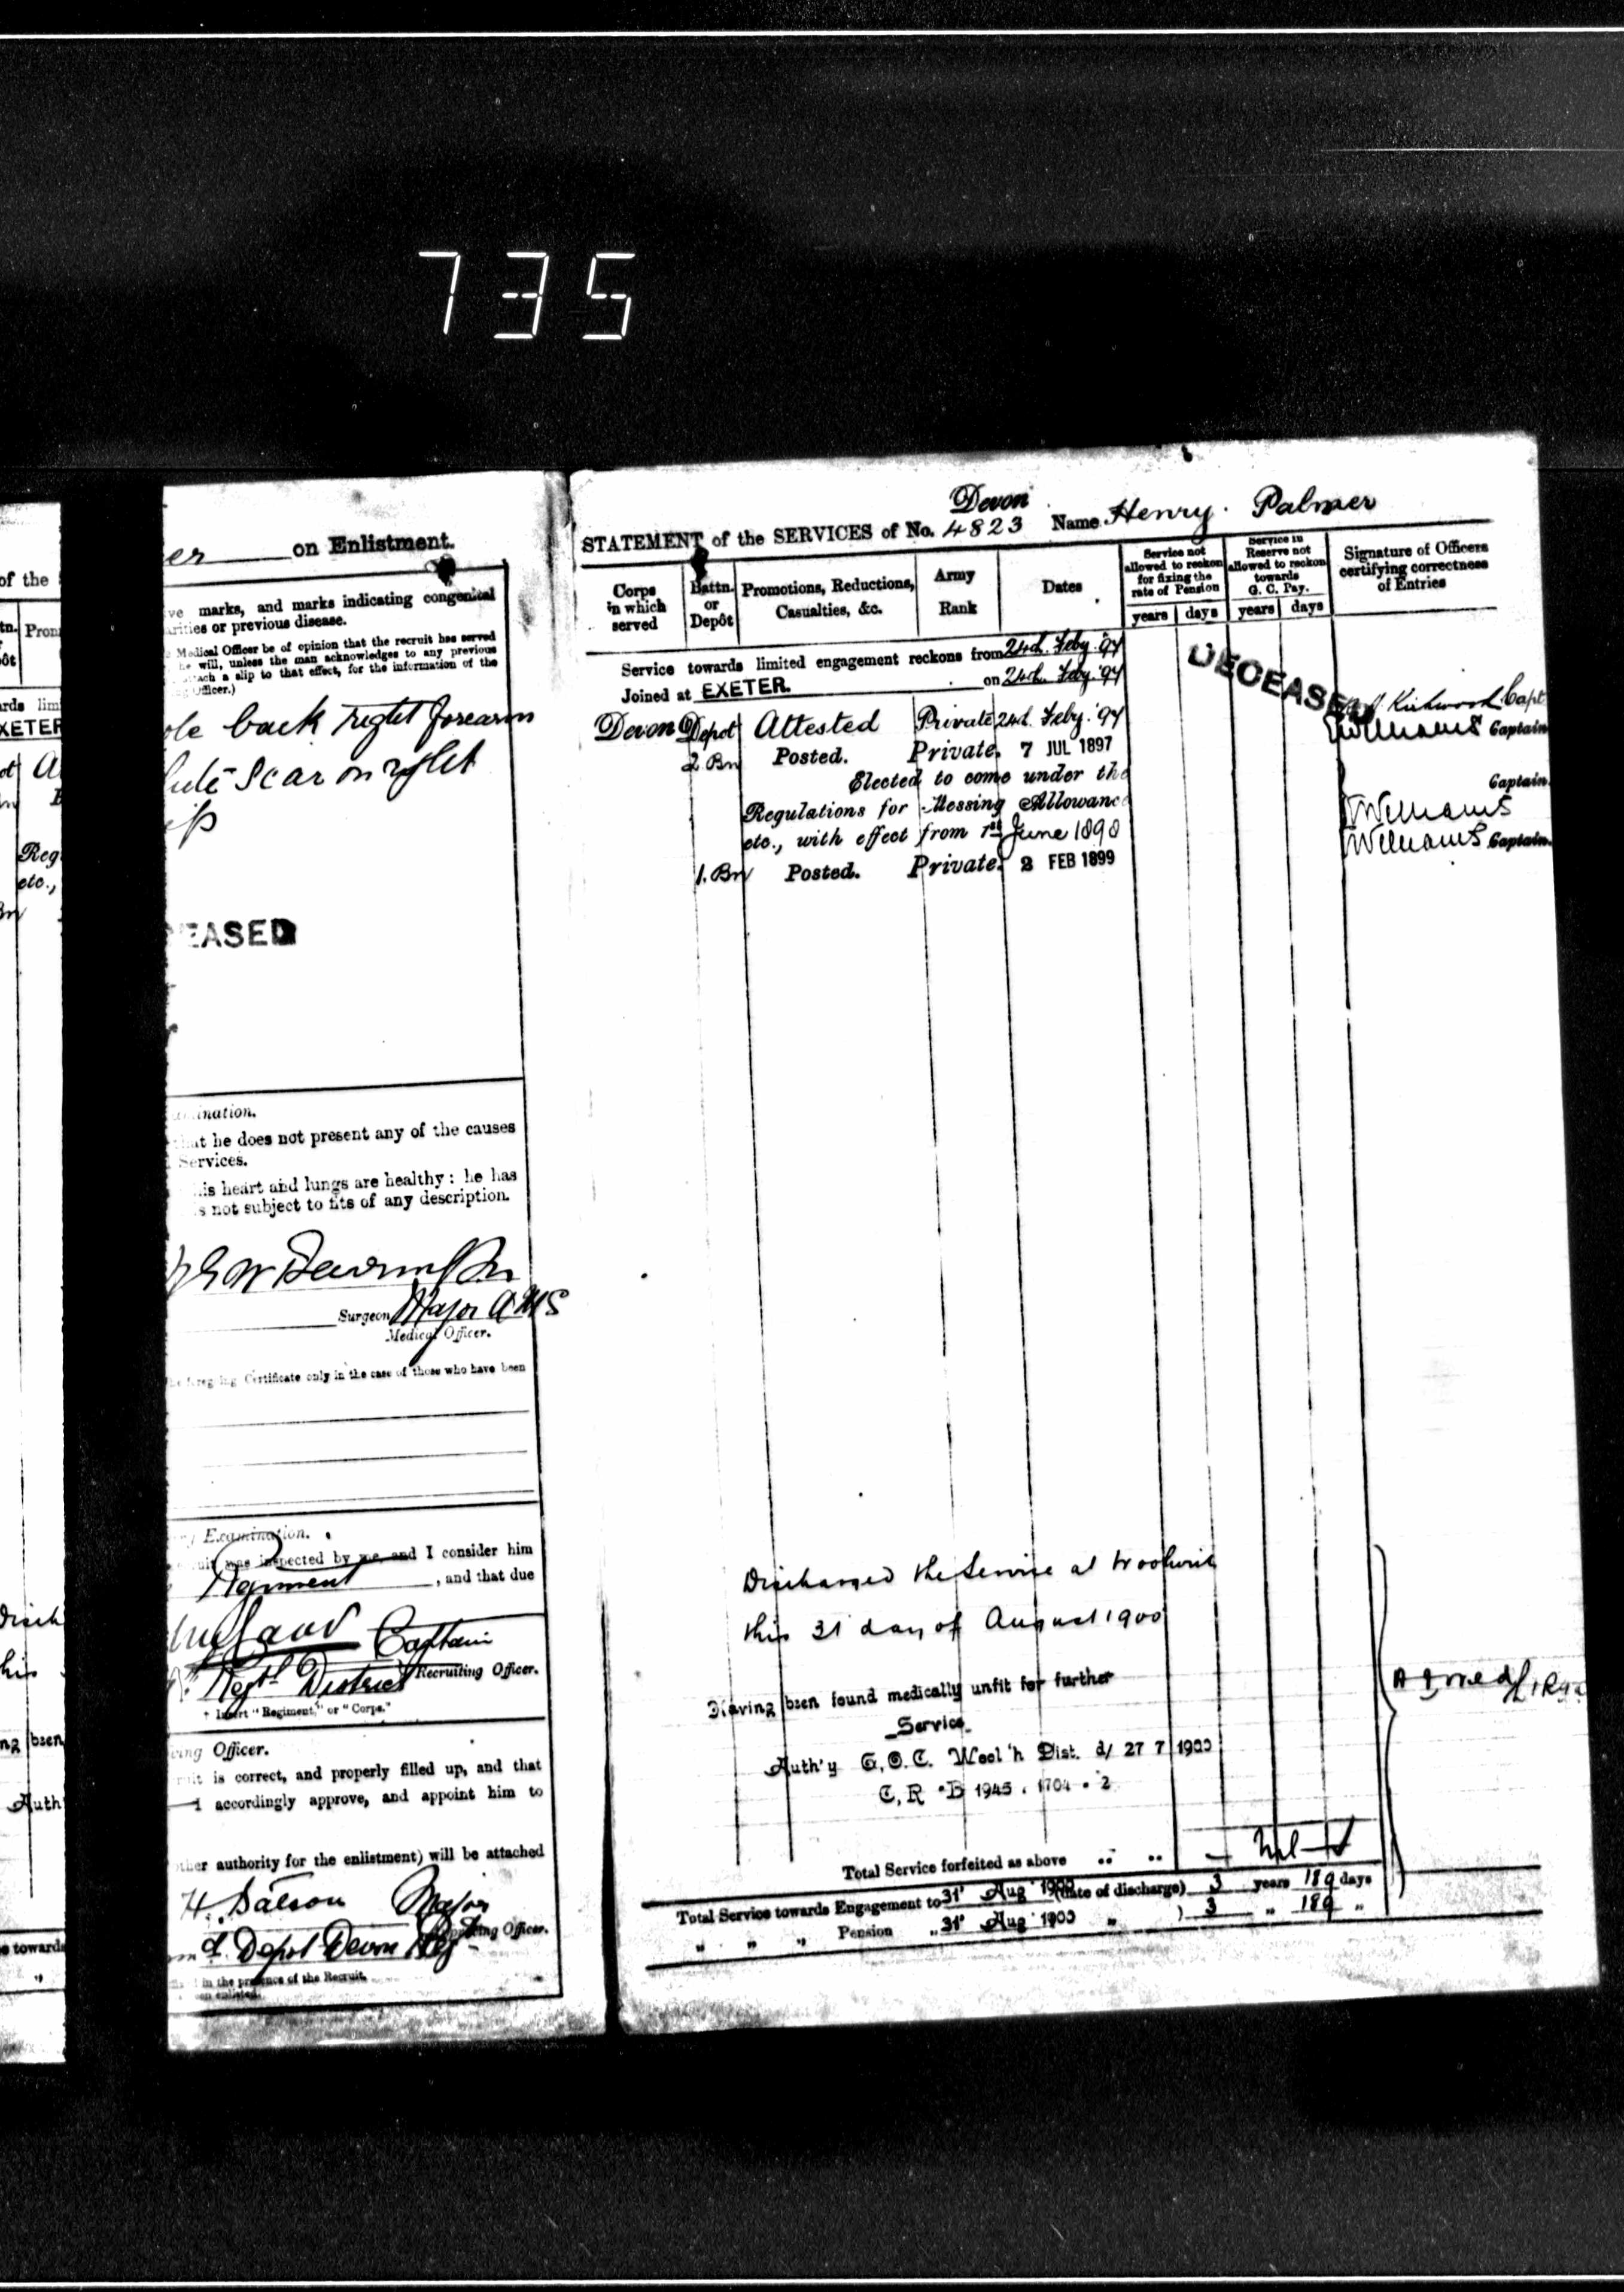 735
of the
tn. Pron
ôt
rds lim
XETER
Reg
etc.,
Disch
his
ng been
Auth
e towards
"
er on Enlistment.
ve marks, and marks indicating congenital
arities or previous disease.
Medical Officer be of opinion that the recruit has served
he will, unless the man acknowledges to any previous
attach a slip to that effect, for the information of the
Officer.)
ole back right forearm
scar on right
ip
EASED
ination.
hat he does not present any of the causes
Services.
is heart and lungs are healthy: he has
s not subject to fits of any description.
Surgeon Major AMS
Medical Officer.
foregoing Certificate only in the case of those who have been
Examination.
was inspected by me, and I consider him
Regiment, and that due
Captain
Regtl District Recruiting Officer.
† Insert "Regiment," or "Corps."
ving Officer.
is correct, and properly filled up, and that
I accordingly approve, and appoint him to
other authority for the enlistment) will be attached
H. Batson Major
Approving Officer.
d. Depot Devon Reg
in the presence of the Recruit.
enlisted.
Devon
STATEMENT of the SERVICES of No. 4823 Name Henry. Palmer
Corps in which served
Battn. or Depôt
Promotions, Reductions, Casualties, &c.
Army Rank
Dates
Service not allowed to reckon for fixing the rate of Pension
years days
Service in Reserve not allowed to reckon towards G. C. Pay.
years days
Signature of Officers certifying correctness of Entries
DECEASED
Service towards limited engagement reckons from 24th Feby. '97
Joined at EXETER. on 24th Feby. '97
Devon Depot Attested Private 24th Feby. '97 Kirkwood Capt
2 Bn Posted. Private. 7 JUL 1897 Williams Captain
Elected to come under the
Regulations for Messing Allowance Captain.
etc., with effect from 1st June 1898 Williams
1. Bn Posted. Private. 2 FEB 1899 Williams Captain.
Discharged the Service at Woolwich
this 31 day of August 1900
Having been found medically unfit for further
Service
Auth'y G.O.C. Wool'h Dist. d/ 27 7 1900
C.R. B 1945. 1704. 2
Total Service forfeited as above .. .. – Nil –
Total Service towards Engagement to 31 Aug 1900 (date of discharge) 3 years 189 days
" " " Pension " 31 Aug 1900 " ) 3 " 189 "